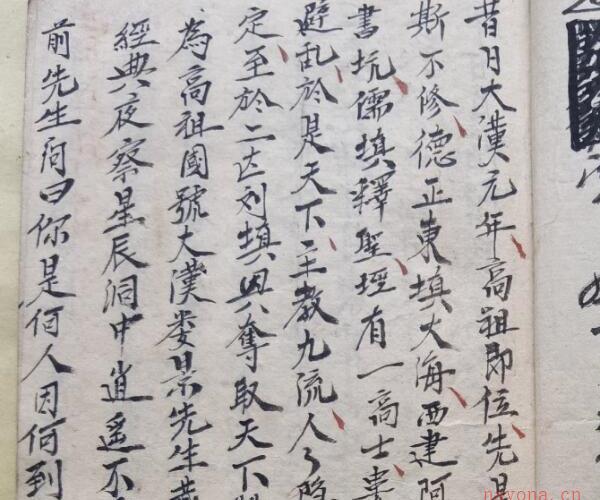 昔日大漢元年高祖即位先是
斯不修德正東填大海西建阿
書坑儒填釋聖坙有一高士
避乱於是天下三教九流人々隐
定至於二世刘填興奪取天下
為高祖國號大漢娄景先生
經典夜察星辰洞中逍遥不
前先生问曰你是何人因何到
nayona.cn